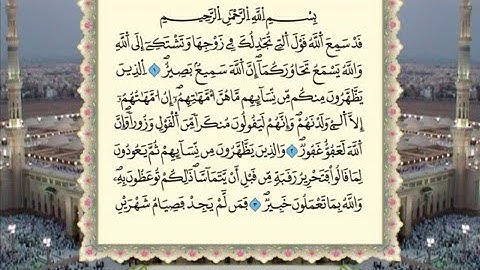 بِسْمِ اللَّهِ الرَّحْمَٰنِ الرَّحِيمِ
قَدْ سَمِعَ اللَّهُ قَوْلَ الَّتِي تُجَادِلُكَ فِي زَوْجِهَا وَتَشْتَكِي إِلَى اللَّهِ
وَاللَّهُ يَسْمَعُ تَحَاوُرَكُمَا إِنَّ اللَّهَ سَمِيعٌ بَصِيرٌ ١ الَّذِينَ
يَظَّهَّرُونَ مِنكُم مِّن نِّسَائِهِم مَّا هُنَّ أُمَّهَاتِهِمْ إِنْ أُمَّهَاتُهُمْ
إِلَّا الَّتِي وَلَدْنَهُمْ وَإِنَّهُمْ لَيَقُولُونَ مُنكَرًا مِّنَ الْقَوْلِ وَزُورًا وَإِنَّ
اللَّهَ لَعَفُوٌّ غَفُورٌ ٢ وَالَّذِينَ يَظَّهَّرُونَ مِن نِّسَائِهِمْ ثُمَّ يَعُودُونَ
لِمَا قَالُوا فَتَحْرِيرُ رَقَبَةٍ مِّن قَبْلِ أَن يَتَمَاسَّا ذَٰلِكُمْ تُوعَظُونَ بِهِ
وَاللَّهُ بِمَا تَعْمَلُونَ خَبِيرٌ ٣ فَمَن لَّمْ يَجِدْ فَصِيَامُ شَهْرَيْنِ